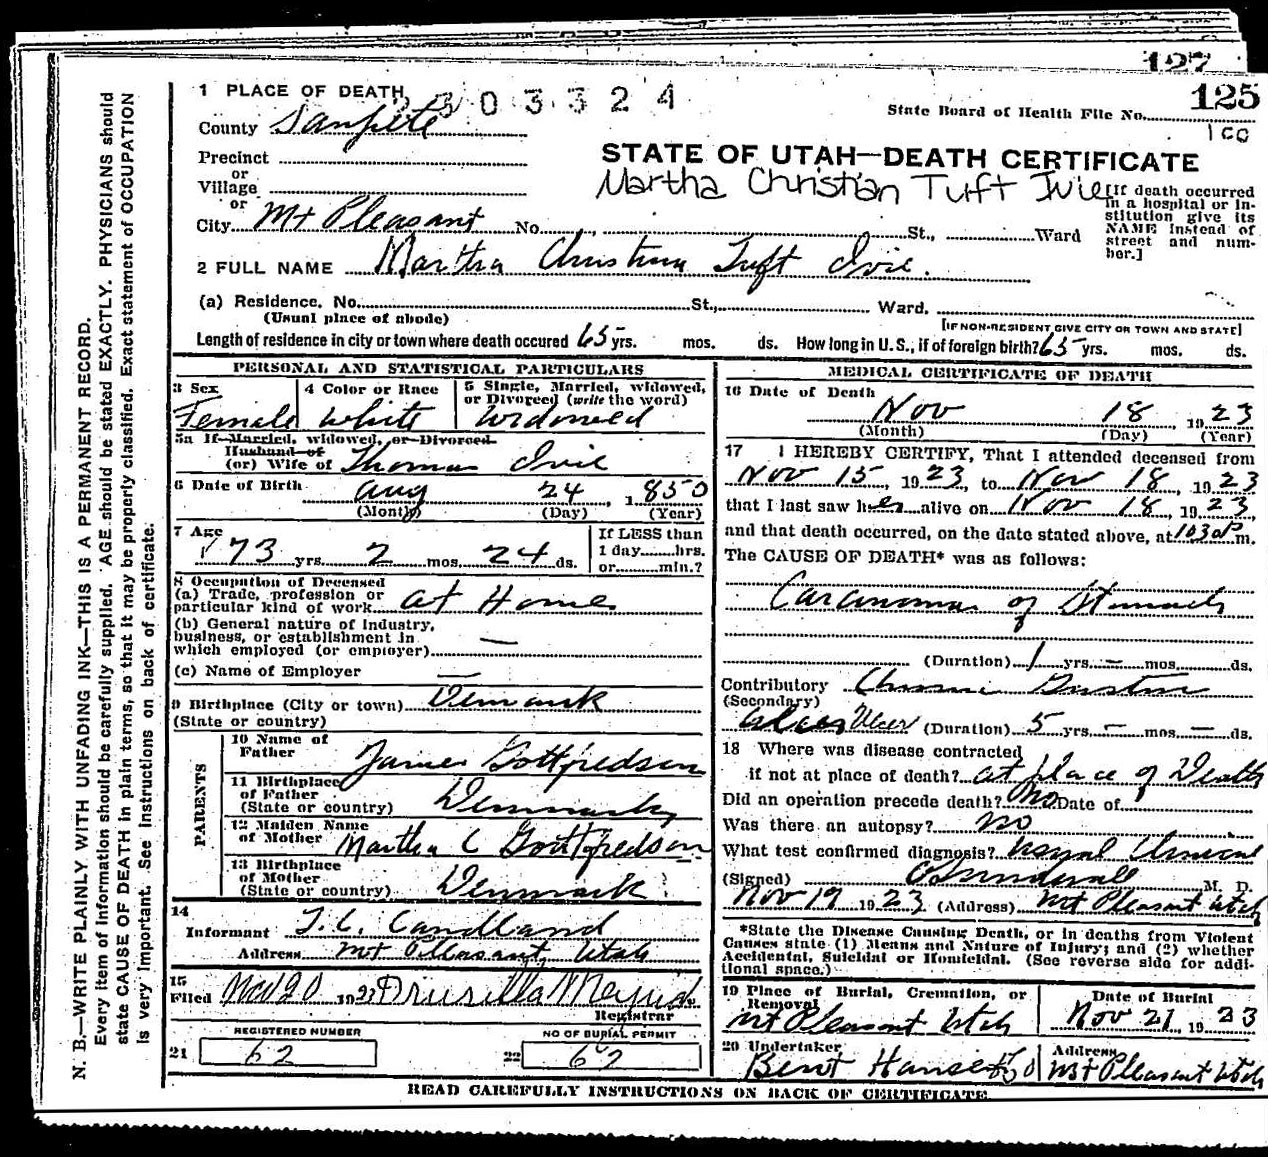 127
125
1 PLACE OF DEATH
303324
State Board of Health File No.
100
County Sanpete
Precinct
or
Village
or
City Mt Pleasant No. St., Ward
STATE OF UTAH—DEATH CERTIFICATE
Martha Christian Tuft Ivie
[If death occurred in a hospital or institution give its NAME instead of street and number.]
2 FULL NAME Martha Christina Tuft Ivie.
(a) Residence. No. St., Ward.
(Usual place of abode)
[IF NON-RESIDENT GIVE CITY OR TOWN AND STATE]
Length of residence in city or town where death occured 65 yrs. mos. ds. How long in U. S., if of foreign birth? 65 yrs. mos. ds.
PERSONAL AND STATISTICAL PARTICULARS
3 Sex
Female
4 Color or Race
White
5 Single, Married, widowed, or Divorced (write the word)
Widowed
5a If Married, widowed, or Divorced
Husband of
(or) Wife of Thomas Ivie
6 Date of Birth Aug 24, 1850
(Month) (Day) (Year)
7 Age
73 yrs. 2 mos. 24 ds.
If LESS than
1 day hrs.
or min.?
8 Occupation of Deceased
(a) Trade, profession or
particular kind of work At Home
(b) General nature of Industry,
business, or establishment in
which employed (or employer) —
(c) Name of Employer —
9 Birthplace (City or town) Denmark
(State or country)
PARENTS
10 Name of
Father James Gottfredson
11 Birthplace
of Father
(State or country) Denmark
12 Maiden Name
of Mother Martha C Gottfredson
13 Birthplace
of Mother
(State or country) Denmark
14
Informant T. C. Candland
Address Mt Pleasant, Utah
15
Filed Nov 20 1923 Drusilla
Registrar
REGISTERED NUMBER
21 62
NO OF BURIAL PERMIT
22 62
MEDICAL CERTIFICATE OF DEATH
16 Date of Death
Nov 18, 1923
(Month) (Day) (Year)
17 I HEREBY CERTIFY, That I attended deceased from
Nov 15, 1923, to Nov 18, 1923
that I last saw her alive on Nov 18, 1923,
and that death occurred, on the date stated above, at 1030P m.
The CAUSE OF DEATH* was as follows:
Carcinoma of Stomach
(Duration) 1 yrs. — mos. ds.
Contributory Chronic Gastric
(Secondary)
Ulcer (Duration) 5 yrs. — mos. — ds.
18 Where was disease contracted
if not at place of death? At place of Death
Did an operation precede death? No Date of
Was there an autopsy? No
What test confirmed diagnosis? Usual Clinical
(Signed) M. D.
Nov 19 1923 (Address) Mt Pleasant Utah
*State the Disease Causing Death, or in deaths from Violent
Causes state (1) Means and Nature of Injury; and (2) whether
Accidental, Suicidal or Homicidal. (See reverse side for additional space.)
19 Place of Burial, Cremation, or
Removal
Mt Pleasant Utah
Date of Burial
Nov 21, 1923
20 Undertaker
Bent Hansen
Address
Mt Pleasant Utah
READ CAREFULLY INSTRUCTIONS ON BACK OF CERTIFICATE.
N. B.—WRITE PLAINLY WITH UNFADING INK—THIS IS A PERMANENT RECORD.
Every item of information should be carefully supplied. AGE should be stated EXACTLY. PHYSICIANS should
state CAUSE OF DEATH in plain terms, so that it may be properly classified. Exact statement of OCCUPATION
is very important. See Instructions on back of certificate.